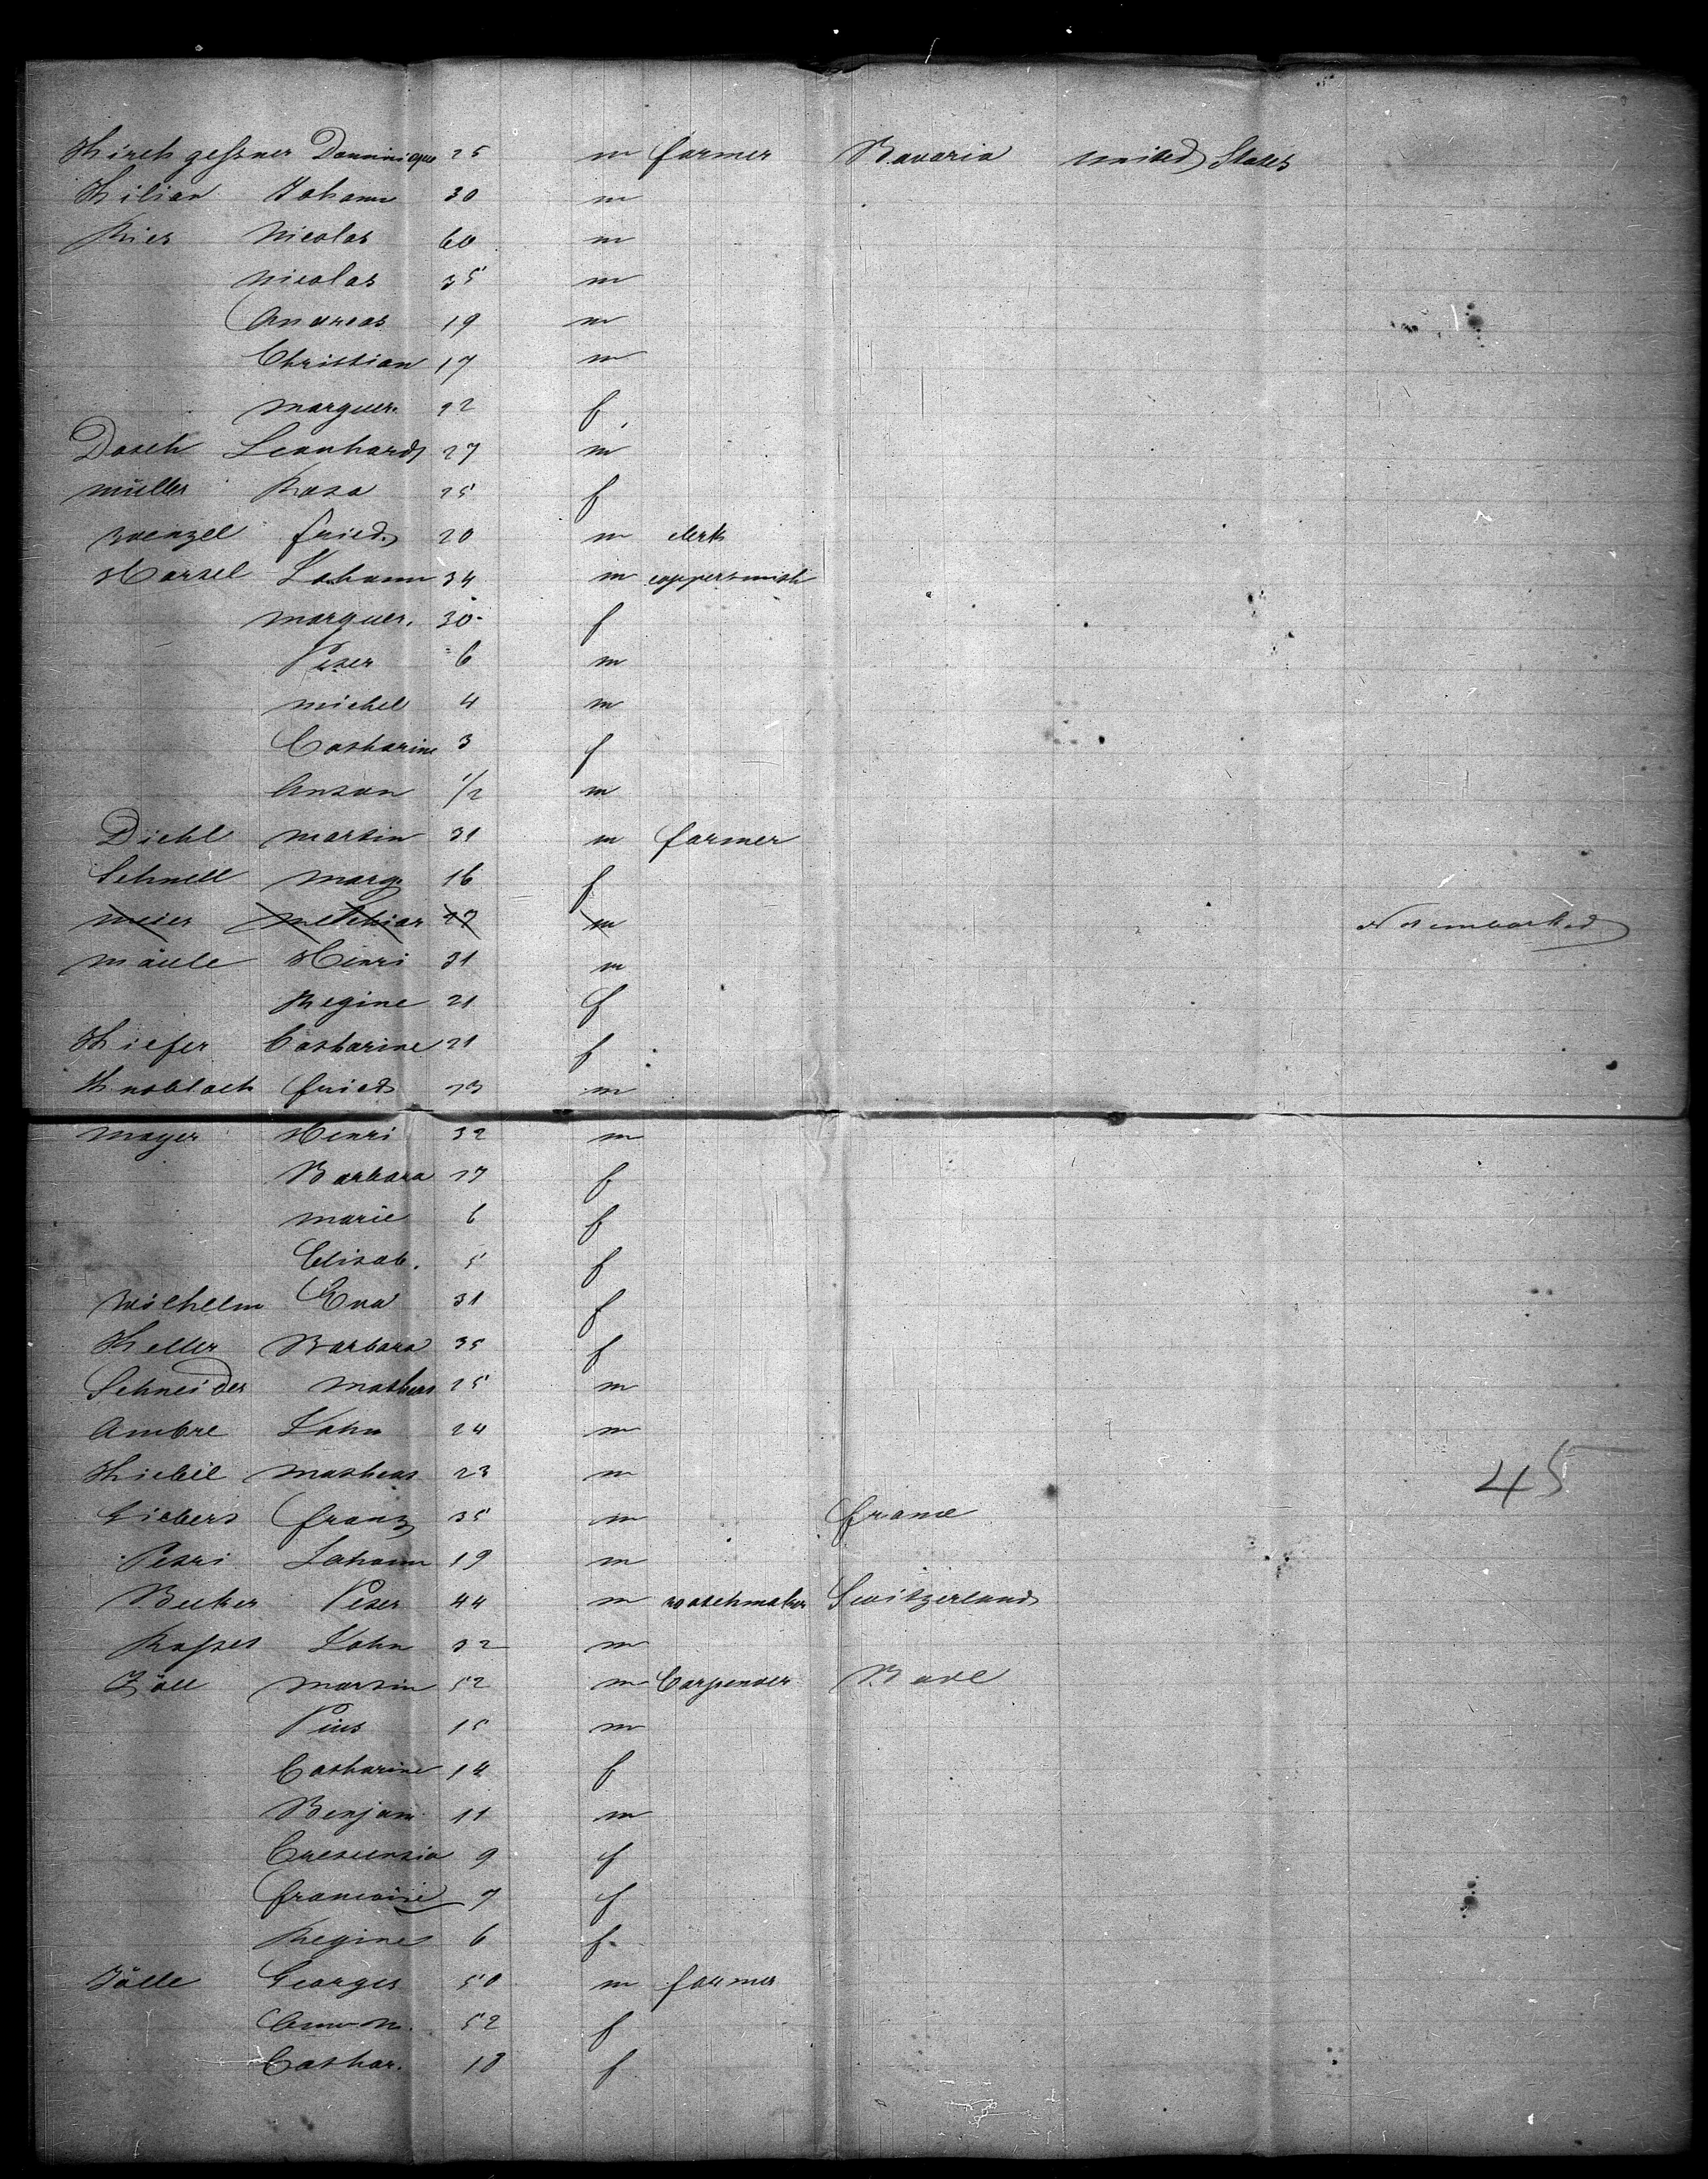 Kirchgessner Dominique 25 m farmer Bavaria united States
Kilian Johann 30 m
Ries Nicolas 60 m
Nicolas 35 m
Andreas 19 m
Christian 17 m
Marguer. 22 f
Dosch Leonhard 27 m
Müller Rosa 25 f
Wenzel Fried. 20 m clerk
Marguer. 30 f
Peter 6 m
Michel 4 m
Catharine 3 f
Anton 1/2 m
Diehl Martin 31 m farmer
Schnell Marg. 16 f
Meier Melchior 27 m Not embarked
Mäule Henri 31 m
Regine 21 f
Kiefer Catharine 21 f
Knobloch Fried. 23 m
Mayer Henri 32 m
Barbara 27 f
Marie 6 f
Elisab. 5 f
Wilhelm Eva 31 f
Keller Barbara 35 f
Schneider Matheus 25 m
Ambre John 24 m
Matheas 23 m
45
Franz 35 m France
Petri Johann 19 m
Becker Peter 44 m watchmaker Switzerland
John 32 m
Martin 52 m Carpenter Bade
Pius 15 m
Catharine 14 f
Benjam. 11 m
Crescensia 9 f
Francoise 7 f
Regine 6 f
Georges 50 m farmer
52 f
Cathar. 18 f